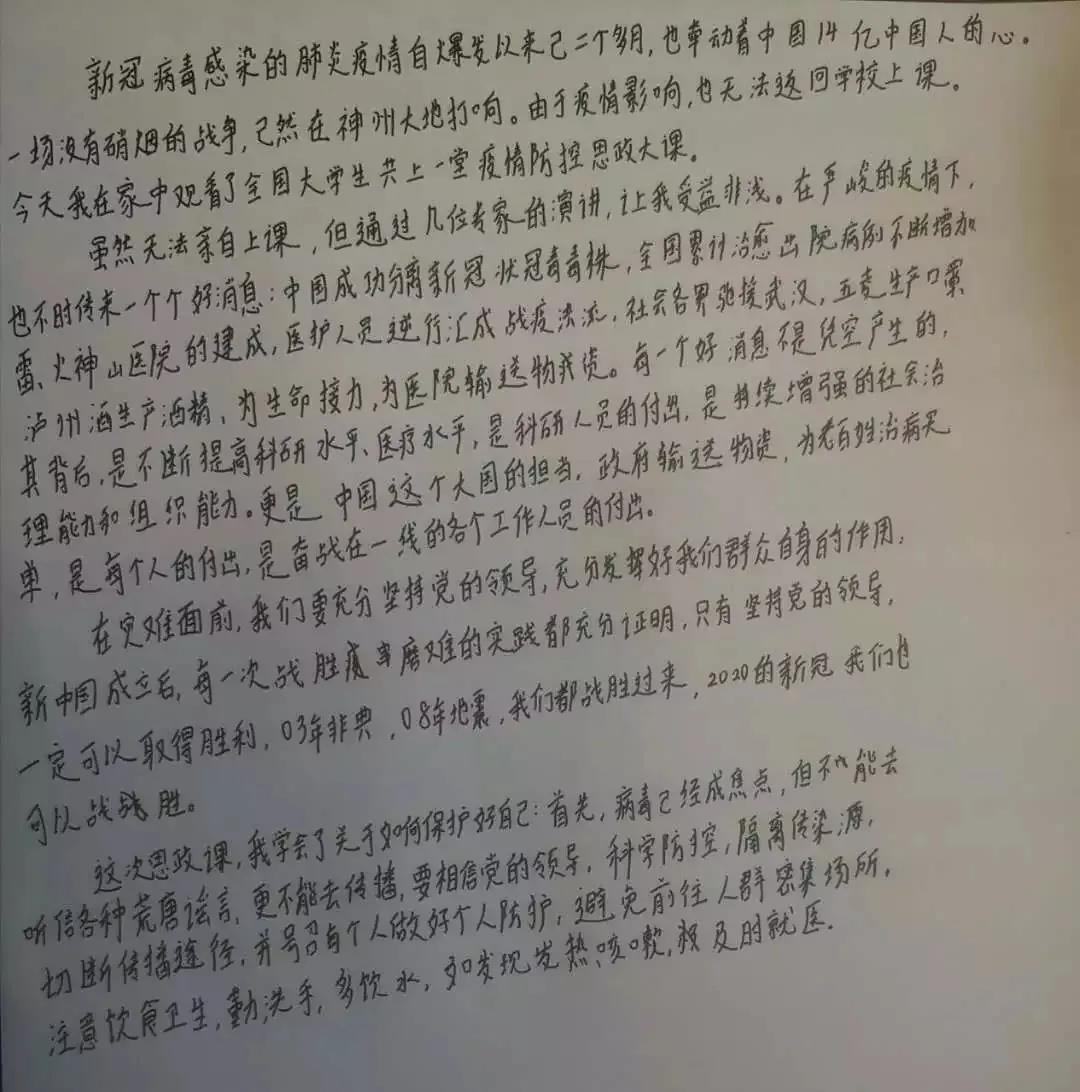 新冠病毒感染的肺炎疫情自爆发以来已二个多月,也牵动着中国14亿中国人的心。
一场没有硝烟的战争,已然在神州大地打响。由于疫情影响,也无法返回学校上课。
今天我在家中观看了全国大学生共上一堂疫情防控思政大课。
虽然无法亲自上课,但通过几位专家的演讲,让我受益非浅。在严峻的疫情下,
也不时传来一个个好消息:中国成功分离新冠状冠毒毒株,全国累计治愈出院病例不断增加
雷、火神山医院的建成,医护人员逆行汇成战疫洪流,社会各界驰援武汉,五菱生产口罩
泸州酒生产酒精,为生命接力,为医院输送物资。每一个好消息不是凭空产生的,
其背后,是不断提高科研水平、医疗水平,是科研人员的付出,是持续增强的社会治
理能力和组织能力。更是中国这个大国的担当,政府输送物资,为老百姓治病买
单,是每个人的付出,是奋战在一线的各个工作人员的付出。
在灾难面前,我们要充分坚持党的领导,充分发挥好我们群众自身的作用,
新中国成立后,每一次战胜磨难的实践都充分证明,只有坚持党的领导,
一定可以取得胜利,03年非典,08年地震,我们都战胜过来,2020的新冠我们也
可以战战胜。
这次思政课,我学会了关于如何保护好自己:首先,病毒已经成焦点,但不能去
听信各种荒唐谣言,更不能去传播,要相信党的领导,科学防控,隔离传染源,
切断传播途径,并号召有个人做好个人防护,避免前往人群密集场所,
注意饮食卫生,勤洗手,多饮水,如发现发热、咳嗽,及时就医.